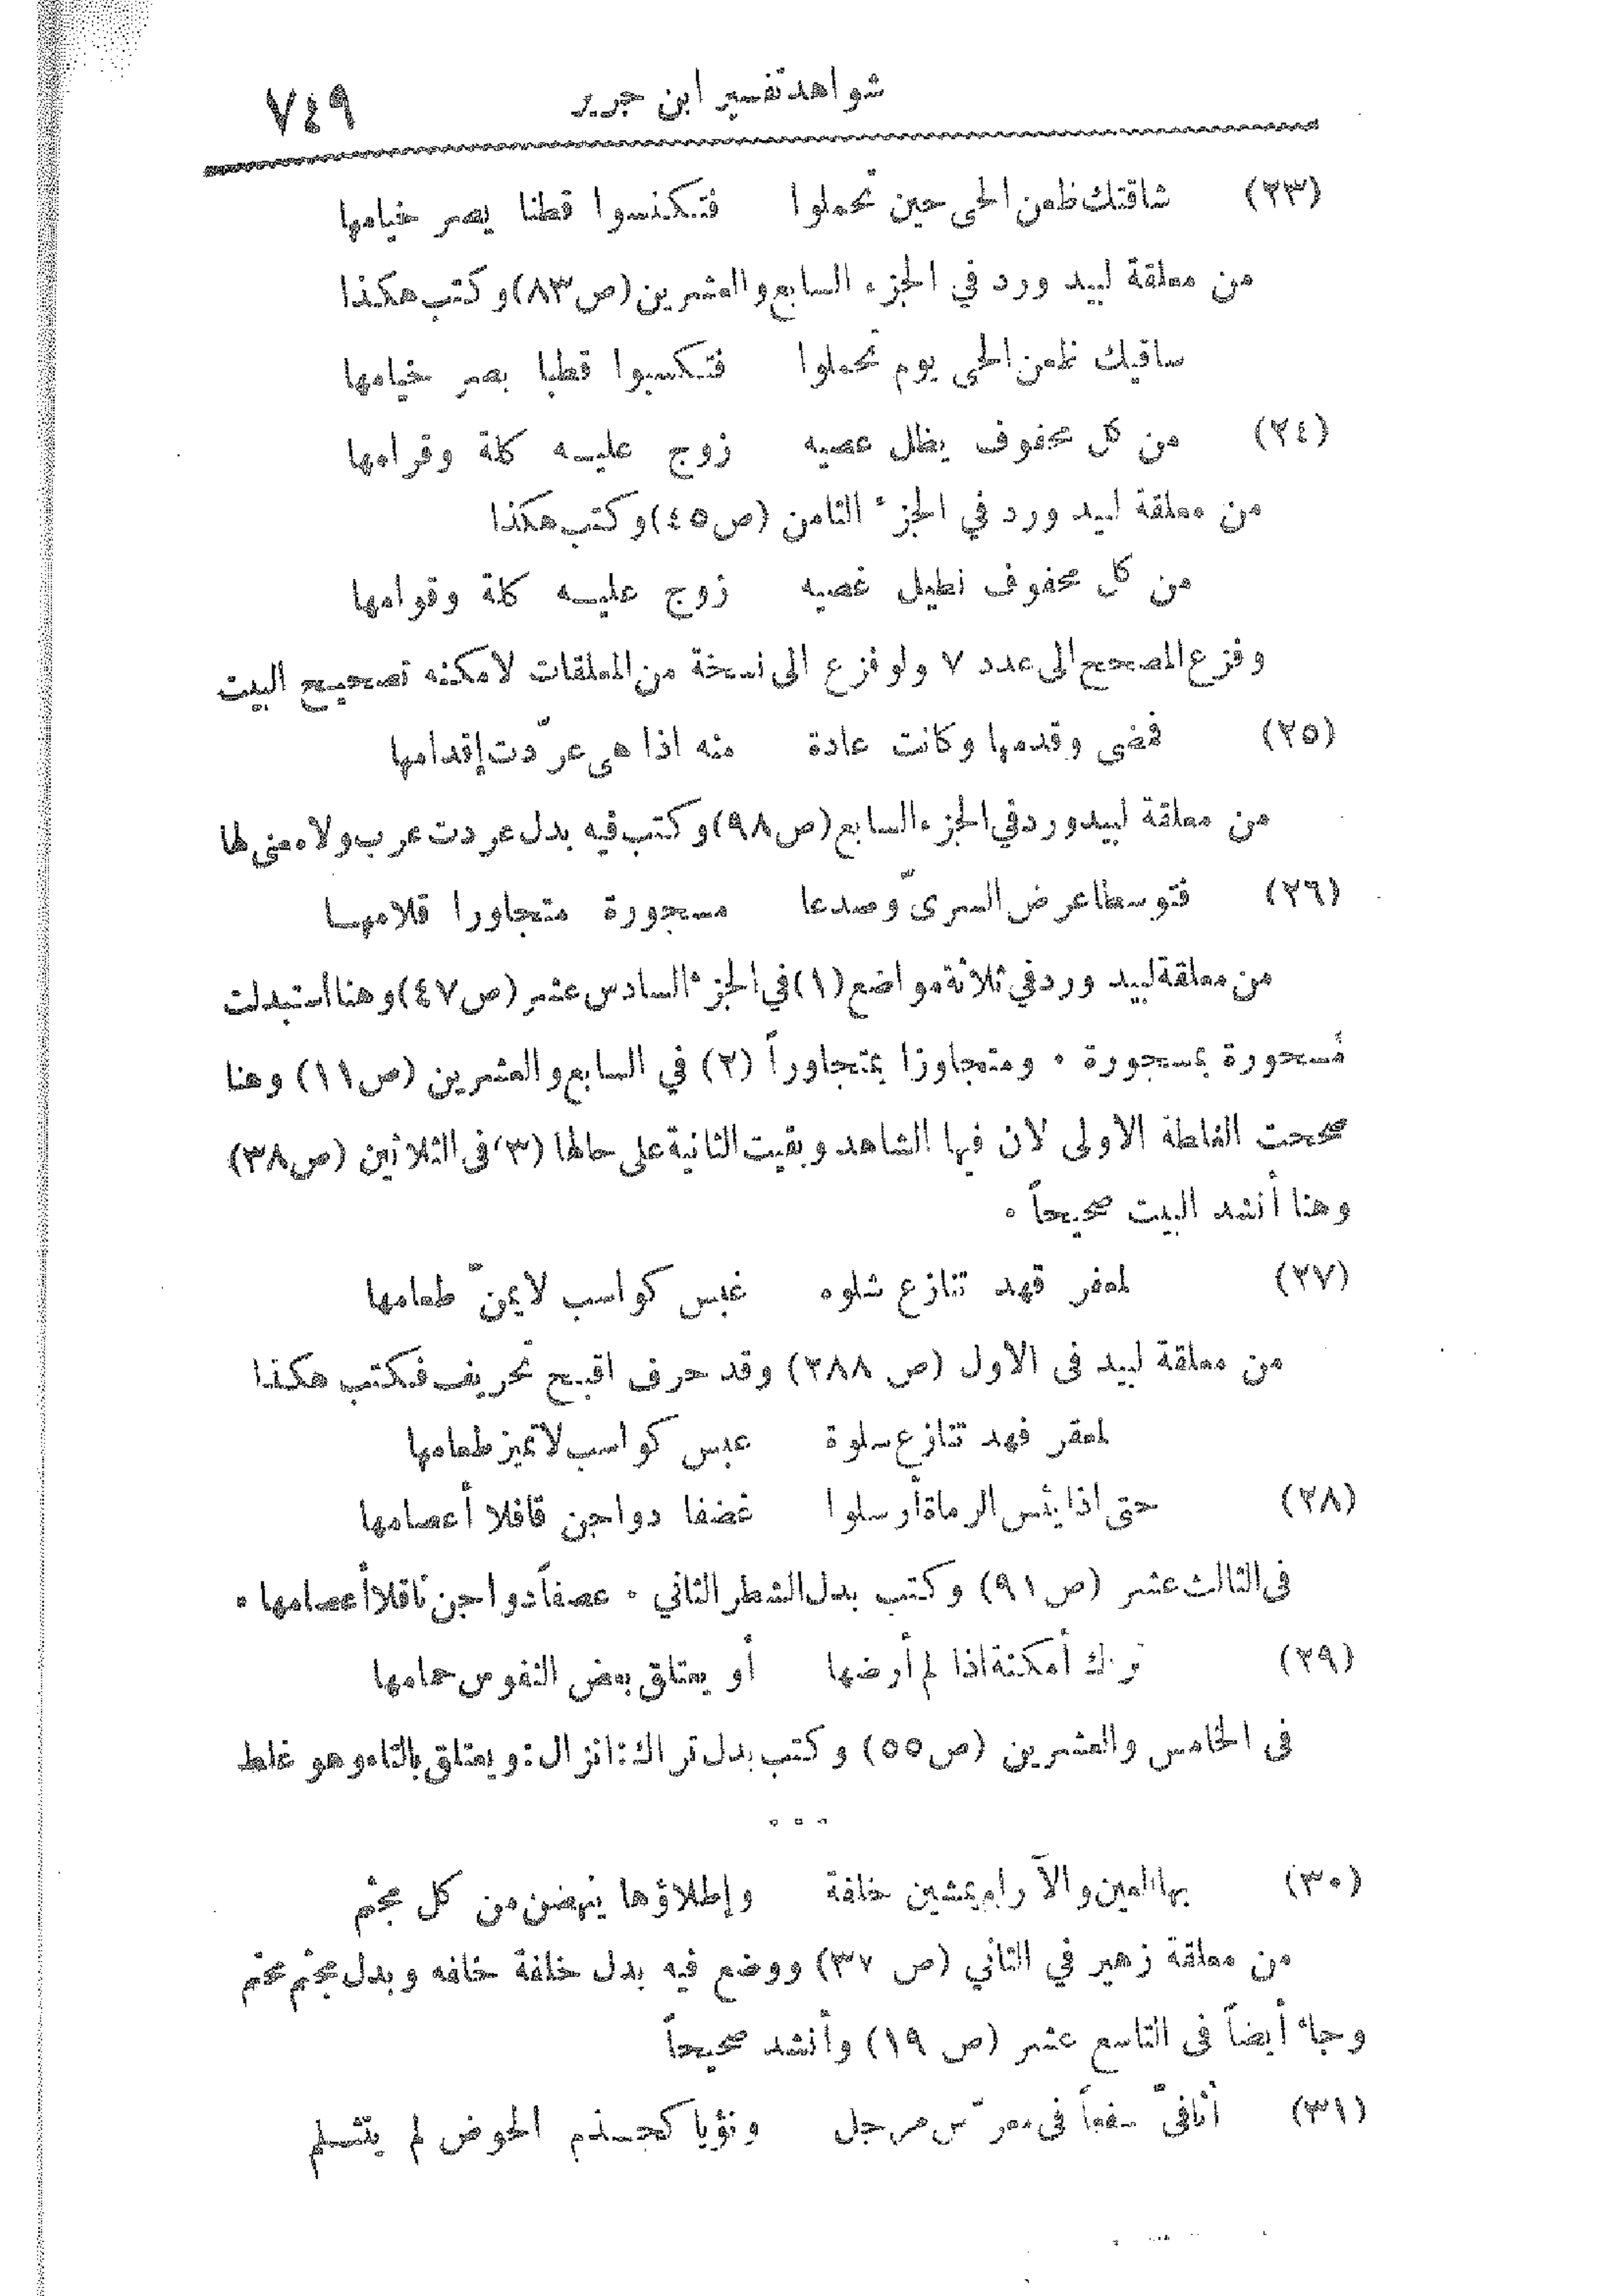 شواهد تفسير ابن جرير ٧٤٩
(٢٣) شاقتك ظعن الحي حين تحملوا فتكنسوا قطنا يصر خيامها
من معلقة لبيد ورد في الجزء السابع والعشرين (ص٨٣) وكتب هكذا
ساقيك ظعن الحي يوم تحملوا فتكسبوا قطبا بصر خيامها
(٢٤) من كل محفوف يظل عصيه زوج عليه كلة وقرامها
من معلقة لبيد ورد في الجزء الثامن (ص٤٥) وكتب هكذا
من كل محفوف نطيل غصيه زوج عليه كلة وقوامها
وفزع المصحح الى عدد ٧ ولو فزع الى نسخة من المعلقات لامكنه تصحيح البيت
(٢٥) فمضى وقدمها وكانت عادة منه اذا هي عرّدت إقدامها
من معلقة لبيد ورد في الجزء السابع (ص٩٨) وكتب فيه بدل عردت عرب ولا معنى لها
(٢٦) فتوسطا عرض السريّ وصدعا مسجورة متجاورا قلامها
من معلقة لبيد ورد في ثلاثة مواضع (١) في الجزء السادس عشر (ص٤٧) وهنا استبدلت
مُسحورة بمسجورة ٠ ومتجاوزا بمتجاوراً (٢) في السابع والعشرين (ص١١) وهنا
صححت الغلطة الاولى لان فيها الشاهد وبقيت الثانية على حالها (٣) في الثلاثين (ص٣٨)
وهنا أنشد البيت صحيحاً ٠
(٢٧) لمعفر قهد تنازع شلوه غبس كواسب لا يمنّ طعامها
من معلقة لبيد في الاول (ص ٢٨٨) وقد حرف اقبح تحريف فكتب هكذا
لمقر فهد تنازع سلوة عبس كواسب لا تميز طعامها
(٢٨) حتى اذا يئس الرماة أرسلوا غضفا دواجن قافلا أعصامها
في الثالث عشر (ص٩١) وكتب بدل الشطر الثاني ٠ عصفاً دواجن ناقلا أعصامها ٠
(٢٩) تراك أمكنة اذا لم أرضها أو يعتلق بعض النفوس حمامها
في الخامس والعشرين (ص٥٥) وكتب بدل تراك: انزال: ويعتلق بالتاء وهو غلط
٠ ٠ ٠
(٣٠) بها العين والآرام يمشين خلفة وإطلاؤها ينهضن من كل مجثم
من معلقة زهير في الثاني (ص ٣٧) ووضع فيه بدل خلفة خلفه وبدل مجثم محثم
وجاء أيضاً في التاسع عشر (ص ١٩) وأنشد صحيحاً
(٣١) أثافيّ سفعاً في معرّس مرجل ونؤيا كجذم الحوض لم يتثلم